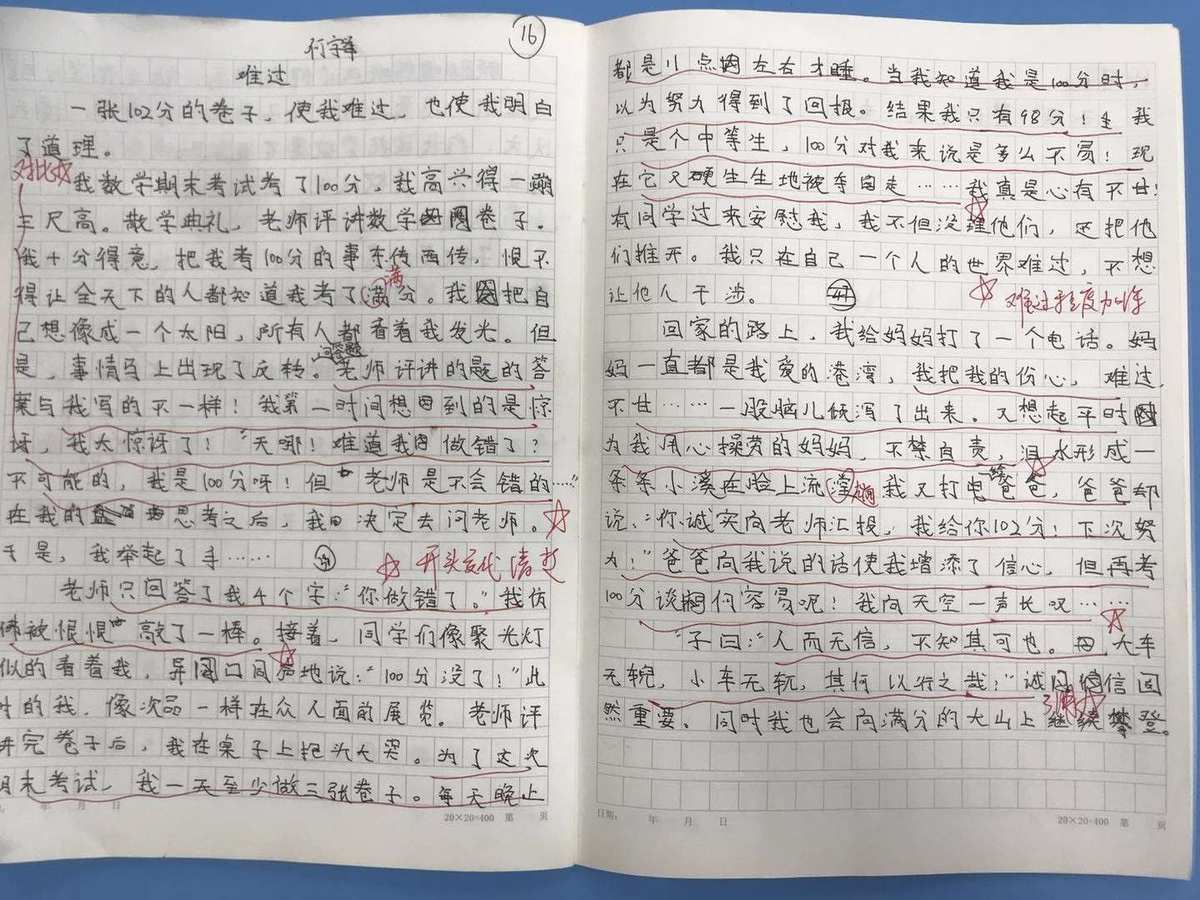 16
难过
一张102分的卷子，使我难过，也使我明白
了道理。
对比
我数学期末考试考了100分，我高兴得一蹦
三尺高。散学典礼，老师评讲数学卷子.
我十分得意，把我考100分的事东传西传，恨不
满
得让全天下的人都知道我考了满分。我把自
己想像成一个太阳，所有人都看着我发光。但
问答题
是，事情马上出现了反转。老师评讲的题的答
案与我写的不一样！我第一时间想到的是惊
讶，我太惊讶了！“天哪！难道我做错了？
不可能的，我是100分呀！但老师是不会错的……”
在我的思考之后，我决定去问老师。
于是，我举起了手……
开头交代清楚
老师只回答了我4个字：“你做错了。”我仿
佛被恨恨敲了一棒。接着，同学们像聚光灯
似的看着我，异口同声地说：“100分没了！”此
时的我，像次品一样在众人面前展览。老师评
讲完卷子后，我在桌子上抱头大哭。为了这次
期末考试，我一天至少做三张卷子。每天晚上
年 月 日
20×20=400 第 页
都是11点左右才睡。当我知道我是100分时，
以为努力得到了回报。结果我只有98分！我
只是个中等生，100分对我来说是多么不易！现
在它又硬生生地被夺走……我真是心有不甘！
有同学过来安慰我，我不但没理他们，还把他
们推开。我只在自己一个人的世界难过，不想
让他人干涉。
难过程度加深
回家的路上，我给妈妈打了一个电话。妈
妈一直都是我爱的港湾，我把我的伤心，难过，
不甘……一股脑儿倾泻了出来。又想起平时
为我用心操劳的妈妈，不禁自责，泪水形成一
条条小溪在脸上流淌。我又打给爸爸，爸爸却
说：“你诚实向老师汇报，我给你102分！下次努
力！”爸爸向我说的话使我增添了信心，但再考
100分谈何容易呢！我向天空一声长叹……
“子曰：“人而无信，不知其可也。大车
无輗，小车无軏，其何以行之哉？”诚信固
然重要。同时我也会向满分的大山上继续攀登。
日期： 年 月 日
20×20=400 第 页